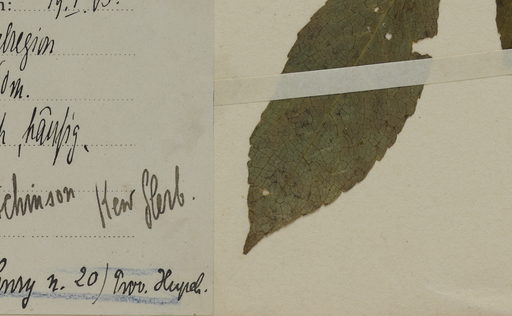 19.1.
region
m.
häufig,
chinson Kew Herb.
enry n. 20) Prov. Hupeh.